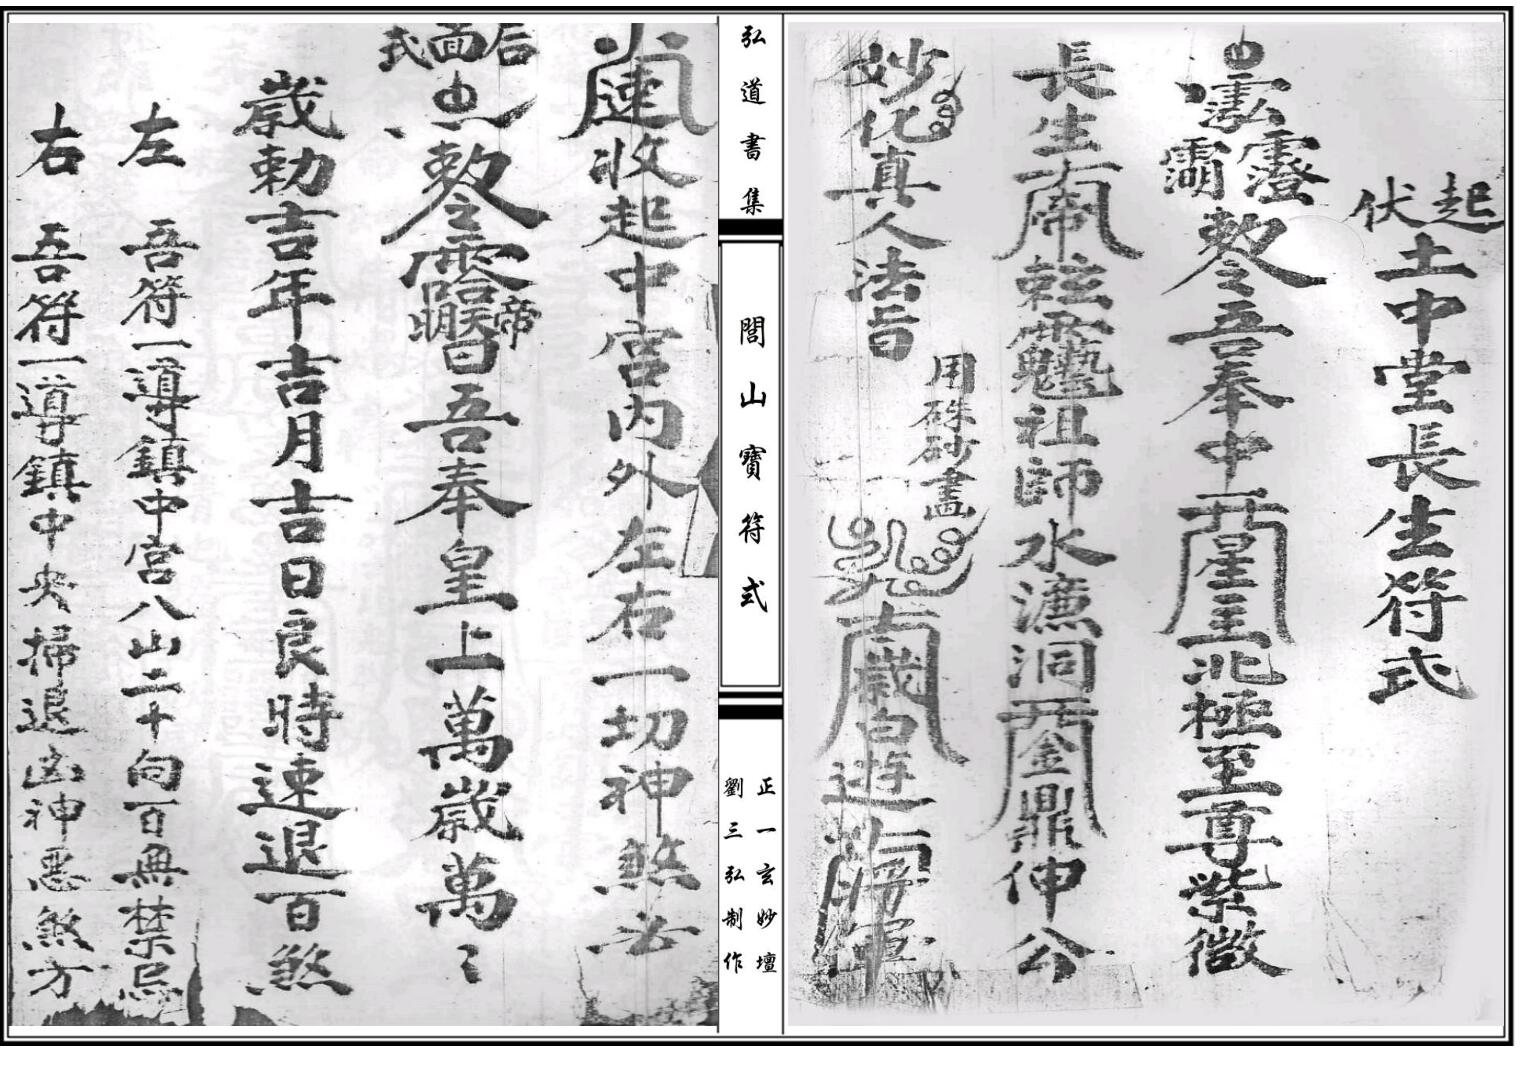 起伏土中堂長生符式
敕令吾奉中星主北極至尊紫微
長生帝 祖師水濂洞金鼎仲公
妙化真人法旨
用硃砂書
歲白遊
弘道書集
閭山寶符式
正一玄妙壇
劉三弘制作
速收起中宮內外左右一切神煞公
后面式
敕令 日吾奉皇上萬歲萬〻
歲勅吉年吉月吉日良時速退百煞
左 吾符一導鎮中宮八山二十向百無禁忌
右 吾符一導鎮中央掃退凶神惡煞方